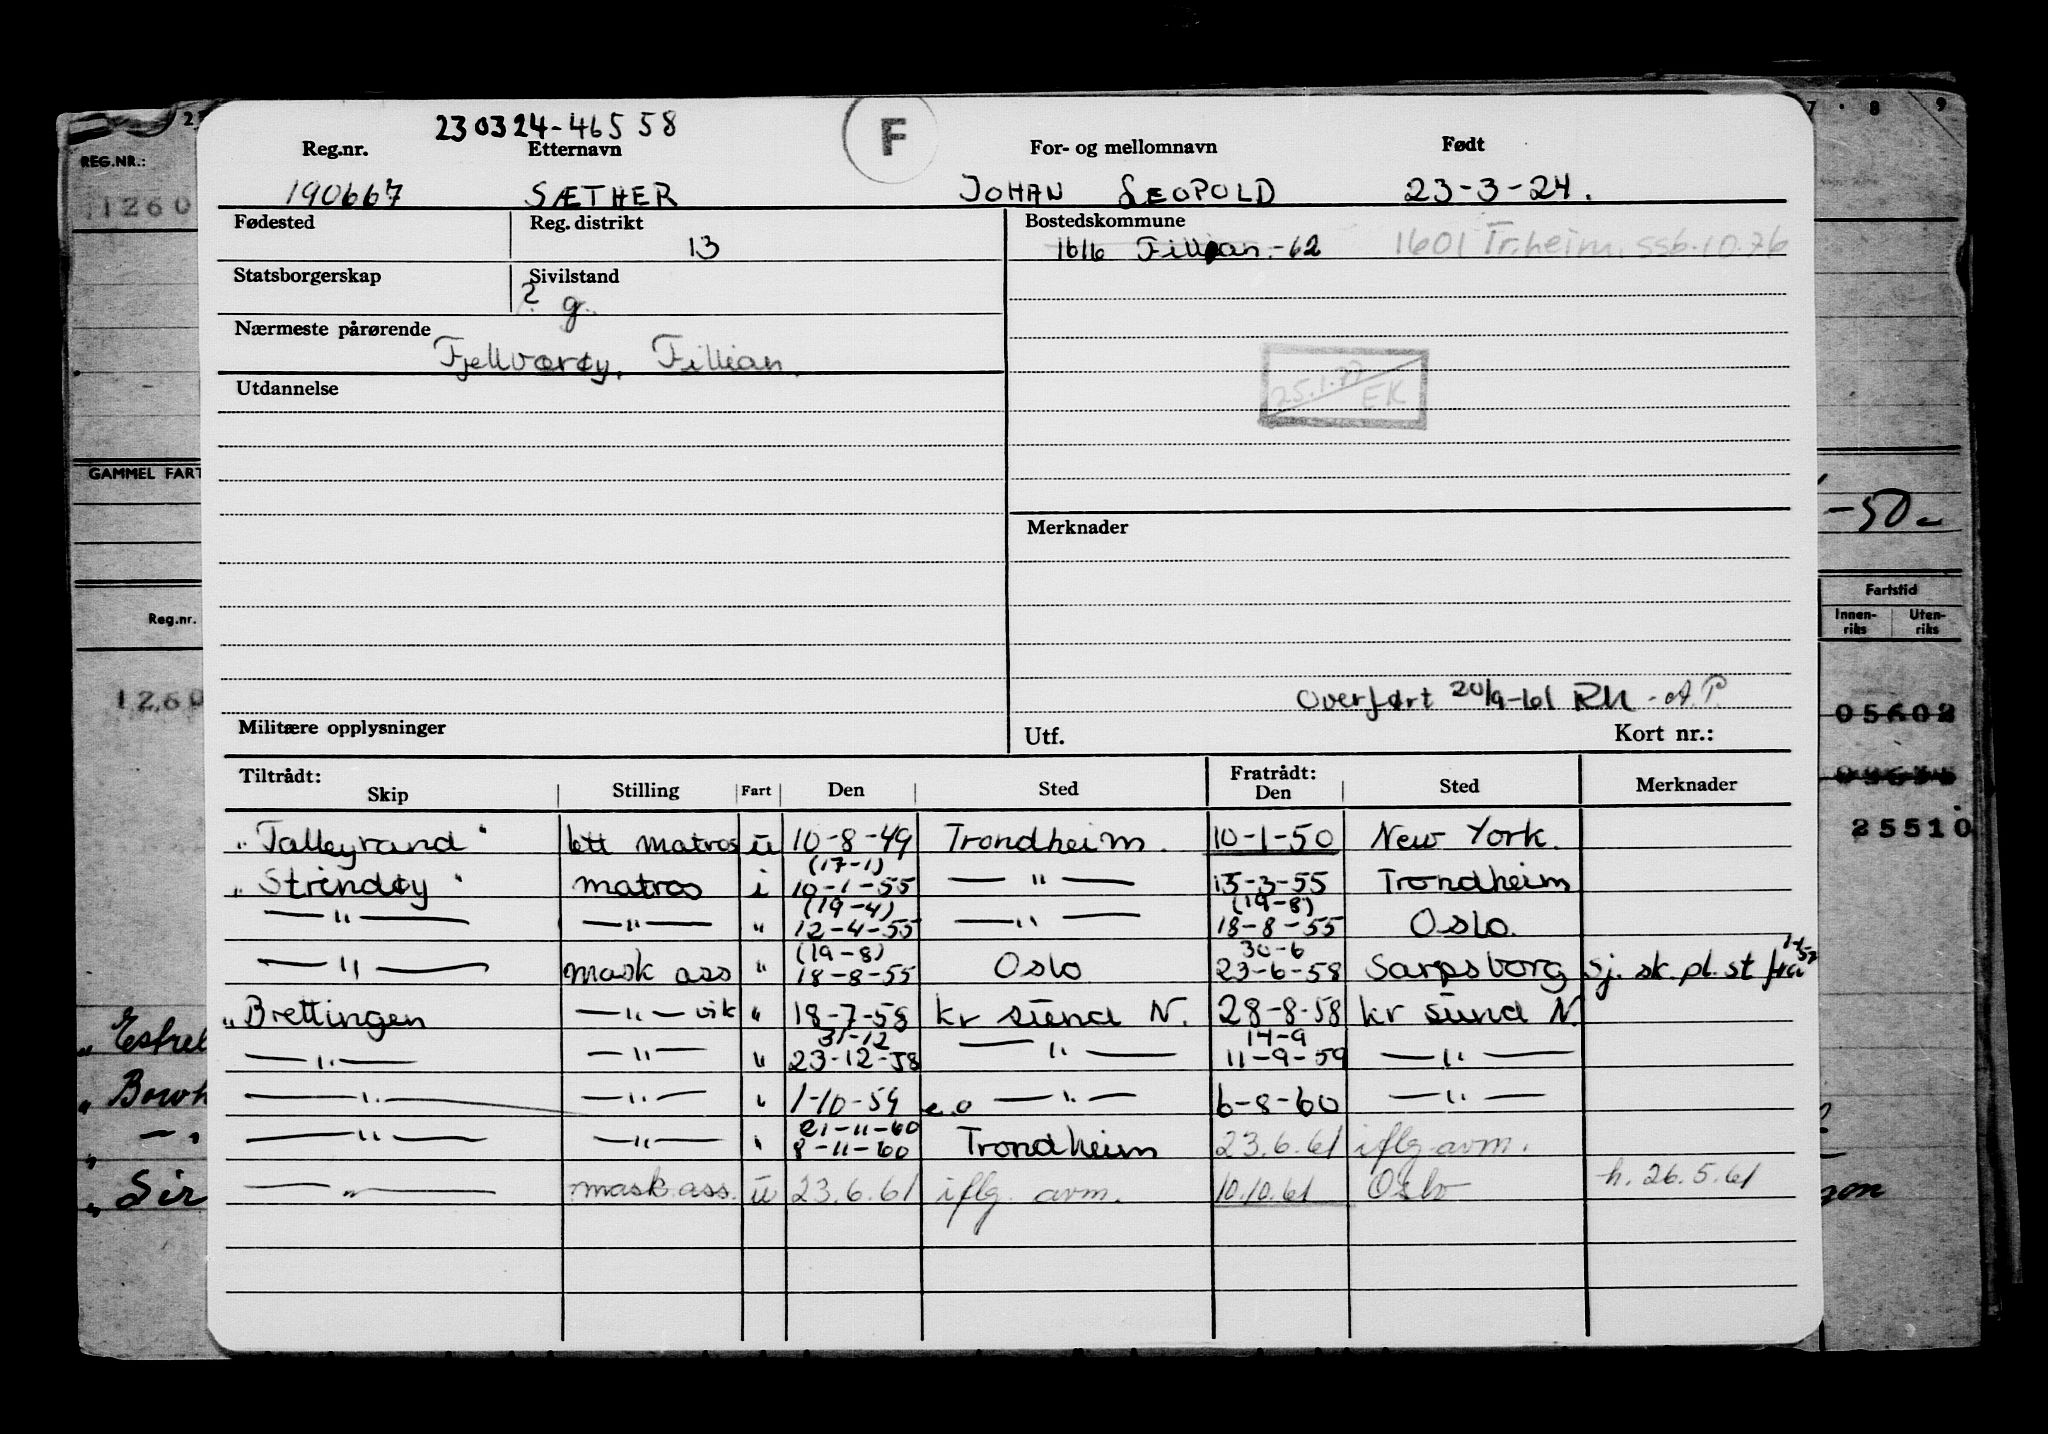 230324-46558
F
Reg.nr. Etternavn For- og mellomnavn Født
190667 SÆTHER JOHAN LEOPOLD 23-3-24.
REG.NR.:
1260
Fødested Reg. distrikt Bostedskommune
13 1616 Fillan -62 1601 Tr.heim. ssb.10.76
Statsborgerskap Sivilstand
? g.
Nærmeste pårørende
Fjellværøy, Fillan.
25.1.77 EK
Utdannelse
GAMMEL FART
Merknader
-50-
Fartstid
Innen-riks Uten-riks
Reg.nr.
1260
Overført 20/9-61 RH - A.P.
05602
Militære opplysninger Utf. Kort nr.:
Tiltrådt: Fratrådt:
Skip Stilling Fart Den Sted Den Sted Merknader
25510
"Talleyrand" lett matros u 10-8-49 Trondheim. 10-1-50 New York.
(17-1)
"Strindøy" matros i 10-1-55 —"— 15-3-55 Trondheim
(19-4) (19-8)
—"— —"— " 12-4-55 —"— 18-8-55 Oslo.
(19-8) 30-6
—"— mask ass " 18-8-55 Oslo 23-6-58 Sarpsborg sj. sk. pl. st fra
"Brettingen —"— vik " 18-7-58 kr sund N. 28-8-58 kr sund N.
31-12 14-9
—"— —"— " 23-12-58 —"— 11-9-59 —"—
—"— —"— " 1-10-59 e.o —"— 6-8-60 —"—
21-11-60
—"— —"— " 8-11-60 Trondheim 23.6.61 iflg. avm.
—"— mask.ass. u 23.6.61 iflg. avm. 10.10.61 Oslo h. 26.5.61
" Estrel
" Bowh
" Sir